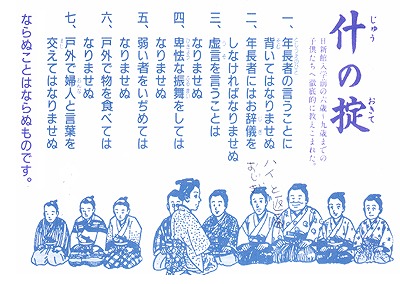 什の掟
じゅう おきて
日新館入学前の六歳~九歳までの
子供たちへ徹底的に教えこまれた。
一、年長者の言うことに
背いてはなりませぬ
二、年長者にはお辞儀を
しなければなりませぬ
三、虚言を言うことは
なりませぬ
四、卑怯な振舞をしては
なりませぬ
五、弱い者をいぢめては
なりませぬ
六、戸外で物を食べては
なりませぬ
七、戸外で婦人と言葉を
交えてはなりませぬ
ならぬことはならぬものです。
ハイと返